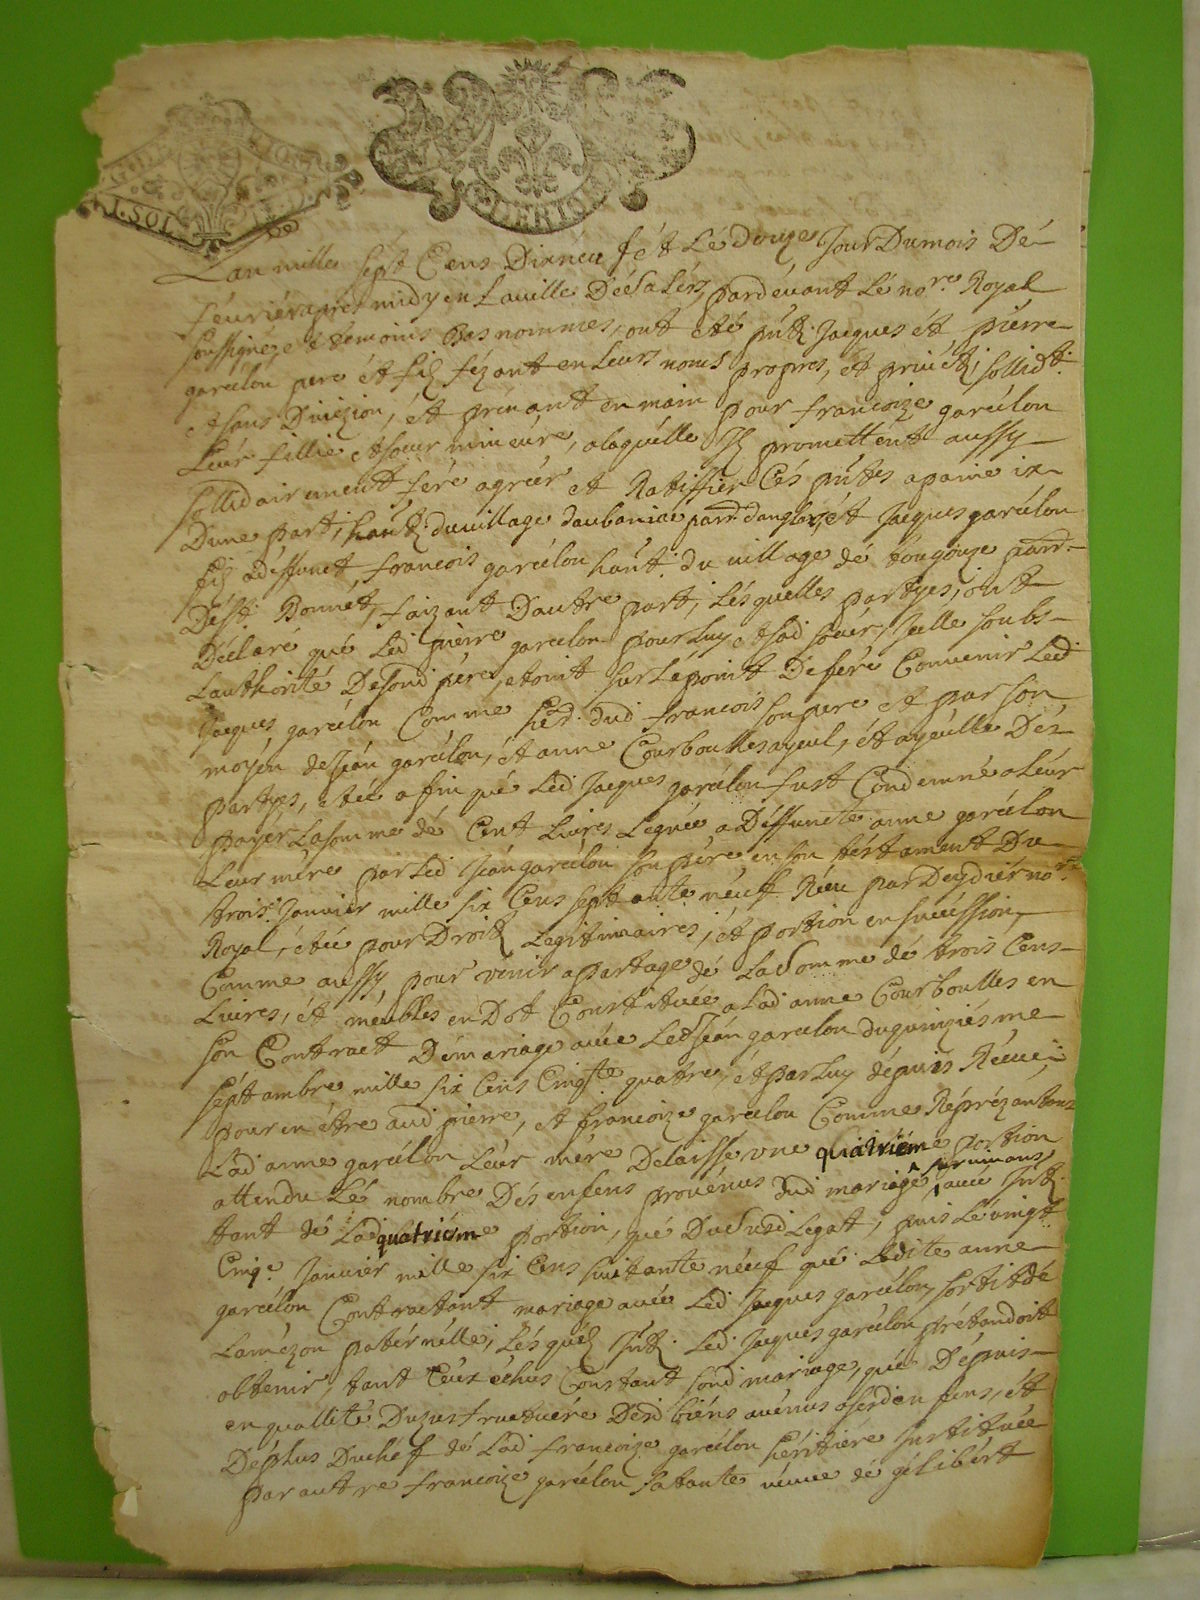 G. DE RIOM
I. SOL
Lan mille sept Cens Dixneu f ét Lé douze Jour Dumois Dé
féuriér apres midy en Lauille Désaléz, pardéuant Lé no.re Royal
soussignéz et témoins bas nommes, ont eté pntz Jacques ét pierre
garcélon pere ét filz fézant en Leurs noms propres, et priué, sollidt.
et sans Diuizion, ét prénant en main pour francoize garcélon
Leur fillie et soeur mineure, alaquélle Ilz promettént aussy
sollidairement féré agréér et Ratiffiér Cés pntés apaine
Dune part, hantz du uillage daubaniac parr. danglar, ét Jacques garcélon
filz adéffunct francois garcélon hant. du uillage dé parr.
Dé st. Bonnét, faizant Dautre part, Lésquelles partyes, ont
Déclaré qué Léd pierre garcélon pour Luy et sad soeur, Icelle soubs
Lauthorité De sond pére, etoint sur Lé point De feré Conuenir Léd
Jacques garcélon Comme hérd. dud francois son pere et par son
moyén de Jéan garcélon, ét anne Courboulles ayeul, ét ayeulle Dés
partyes, afin qué Léd Jacques garcélon fust Condemné a Leur
payér La somme dé Cent Liures Léguée a Déffuncte anne garcélon
Leur mére par Léd Jéan garcélon son pére en son téstament Du
trois.e Januier mille six Cens septante néuf Réeu par Deydiér no.re
Royal, pour Droitz Légitimaires, ét portion en succéssion,
Comme aussy pour vénir apartage dé La somme dé trois Cens
Liures, ét meubles en Dot Constituée a Lad anne Courboulles en
son Contract Démariage auéc Led Jéan garcélon du quinziésme
septambre mille six Cens Cinqte quatre, ét par Luy dépuis Réceu,
pour en étre aud pierre, et francoize garcélon Comme Réprézantans
Lad anne garcélon Leur mére Délaissé vne quatriéme portion
attendu Lé nombre Dés enfens prouénus dud mariage suruiuans, auéc Intz.
tant dé Lad quatriéme portion, qué Du susd Légatt, puis Lé uingt
Cinq.e Januiér mille six Cens néuf qué Ladite anne
garcélon Contractant mariage auéc Léd Jacques garcélon, sortit dé
Lamézon patérnélle, Lésquélz Intz. Léd Jacques garcélon prétandoit
obtenir, tant Céux échus Constant sond mariage, qué Dépuis
en quallité Duzufructuére Desd biéns auénus a sesd enfens, ét
Dé plus Duchéf dé Lad francoize garcélon héritiére Instituée
par autre francoize garcélon satante véuue dé gélibért